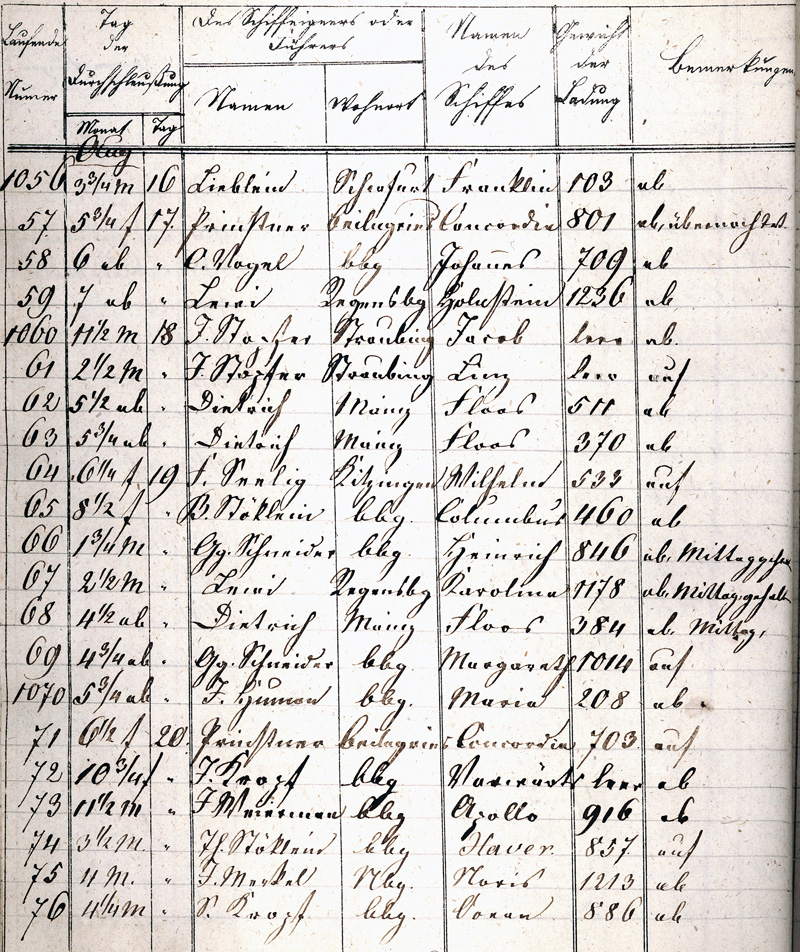 Laufende Numer
Tag der Durchschleußung
Monat Tag
Des Schiffeigners oder Führers
Namen Wohnort
Namen des Schiffes
Gewicht der Ladung
Bemerkungen
Aug
1056 3 3/4 M 16 Lieblein Franklin 103 ab
57 5 3/4 f 17. Prinstner Beilngries Concordia 801 ab, übernachtet.
58 6 ab " C. Vogel bbg Johannes 709 ab
59 7 ab " Lewi Regensbg Holnstein 1236 ab
1060 11 1/2 M 18 J. Stopfer Straubing Jacob leer ab.
61 2 1/2 M " J. Stopfer Straubing Linz leer auf
62 5 1/2 ab " Dietrich Mainz Floos 511 ab
63 5 3/4 ab " Dietrich Mainz Floos 370 ab
64 6 1/4 f 19 F. Seelig Kitzingen Wilhelm 533 auf
65 8 1/2 f " B. Stöklein bbg. Columbus 460 ab
66 1 3/4 M " Gg. Schneider bbg. Heinrich 846 ab, Mittag
67 2 1/2 M " Lewi Regensbg Karolina 1178 ab, Mittag gehalt
68 4 1/2 ab " Dietrich Mainz Floos 384 ab, Mittag,
69 4 3/4 ab " Gg. Schneider bbg. Margareth 1014 auf
1070 5 3/4 ab " J. Human bbg. Maria 208 ab
71 6 1/2 f 20. Prinstner Beilngries Concordia 703 auf
72 10 3/4 f " J. Kropf bbg Vorwärts leer ab
73 11 1/2 M " J Weierman bbg Apollo 916 ab
74 3 1/2 M. " Th. Stöklein bbg Xaver. 857 auf
75 4 M. " J. Merkel Nbg. Noris 1213 ab
76 4 1/4 M " S. Kropf bbg. Donau 886 ab